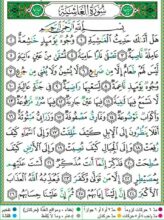 سُورَةُ الْغَاشِيَةِ
بِسْمِ اللَّهِ الرَّحْمَٰنِ الرَّحِيمِ
هَلْ أَتَىٰكَ حَدِيثُ الْغَٰشِيَةِ ١ وُجُوهٌ يَوْمَئِذٍ خَٰشِعَةٌ ٢
عَامِلَةٌ نَّاصِبَةٌ ٣ تَصْلَىٰ نَارًا حَامِيَةً ٤ تُسْقَىٰ مِنْ عَيْنٍ ءَانِيَةٍ ٥
لَّيْسَ لَهُمْ طَعَامٌ إِلَّا مِن ضَرِيعٍ ٦ لَّا يُسْمِنُ وَلَا يُغْنِي مِن جُوعٍ ٧
وُجُوهٌ يَوْمَئِذٍ نَّاعِمَةٌ ٨ لِّسَعْيِهَا رَاضِيَةٌ ٩ فِي جَنَّةٍ عَالِيَةٍ ١٠
لَّا تَسْمَعُ فِيهَا لَٰغِيَةً ١١ فِيهَا عَيْنٌ جَارِيَةٌ ١٢ فِيهَا سُرُرٌ مَّرْفُوعَةٌ ١٣
وَأَكْوَابٌ مَّوْضُوعَةٌ ١٤ وَنَمَارِقُ مَصْفُوفَةٌ ١٥ وَزَرَابِيُّ مَبْثُوثَةٌ ١٦
أَفَلَا يَنظُرُونَ إِلَى الْإِبِلِ كَيْفَ خُلِقَتْ ١٧ وَإِلَى السَّمَاءِ كَيْفَ رُفِعَتْ ١٨
وَإِلَى الْجِبَالِ كَيْفَ نُصِبَتْ ١٩ وَإِلَى الْأَرْضِ كَيْفَ سُطِحَتْ ٢٠
فَذَكِّرْ إِنَّمَا أَنتَ مُذَكِّرٌ ٢١ لَّسْتَ عَلَيْهِم بِمُصَيْطِرٍ ٢٢
إِلَّا مَن تَوَلَّىٰ وَكَفَرَ ٢٣ فَيُعَذِّبُهُ اللَّهُ الْعَذَابَ الْأَكْبَرَ ٢٤
إِنَّ إِلَيْنَا إِيَابَهُمْ ٢٥ ثُمَّ إِنَّ عَلَيْنَا حِسَابَهُم ٢٦